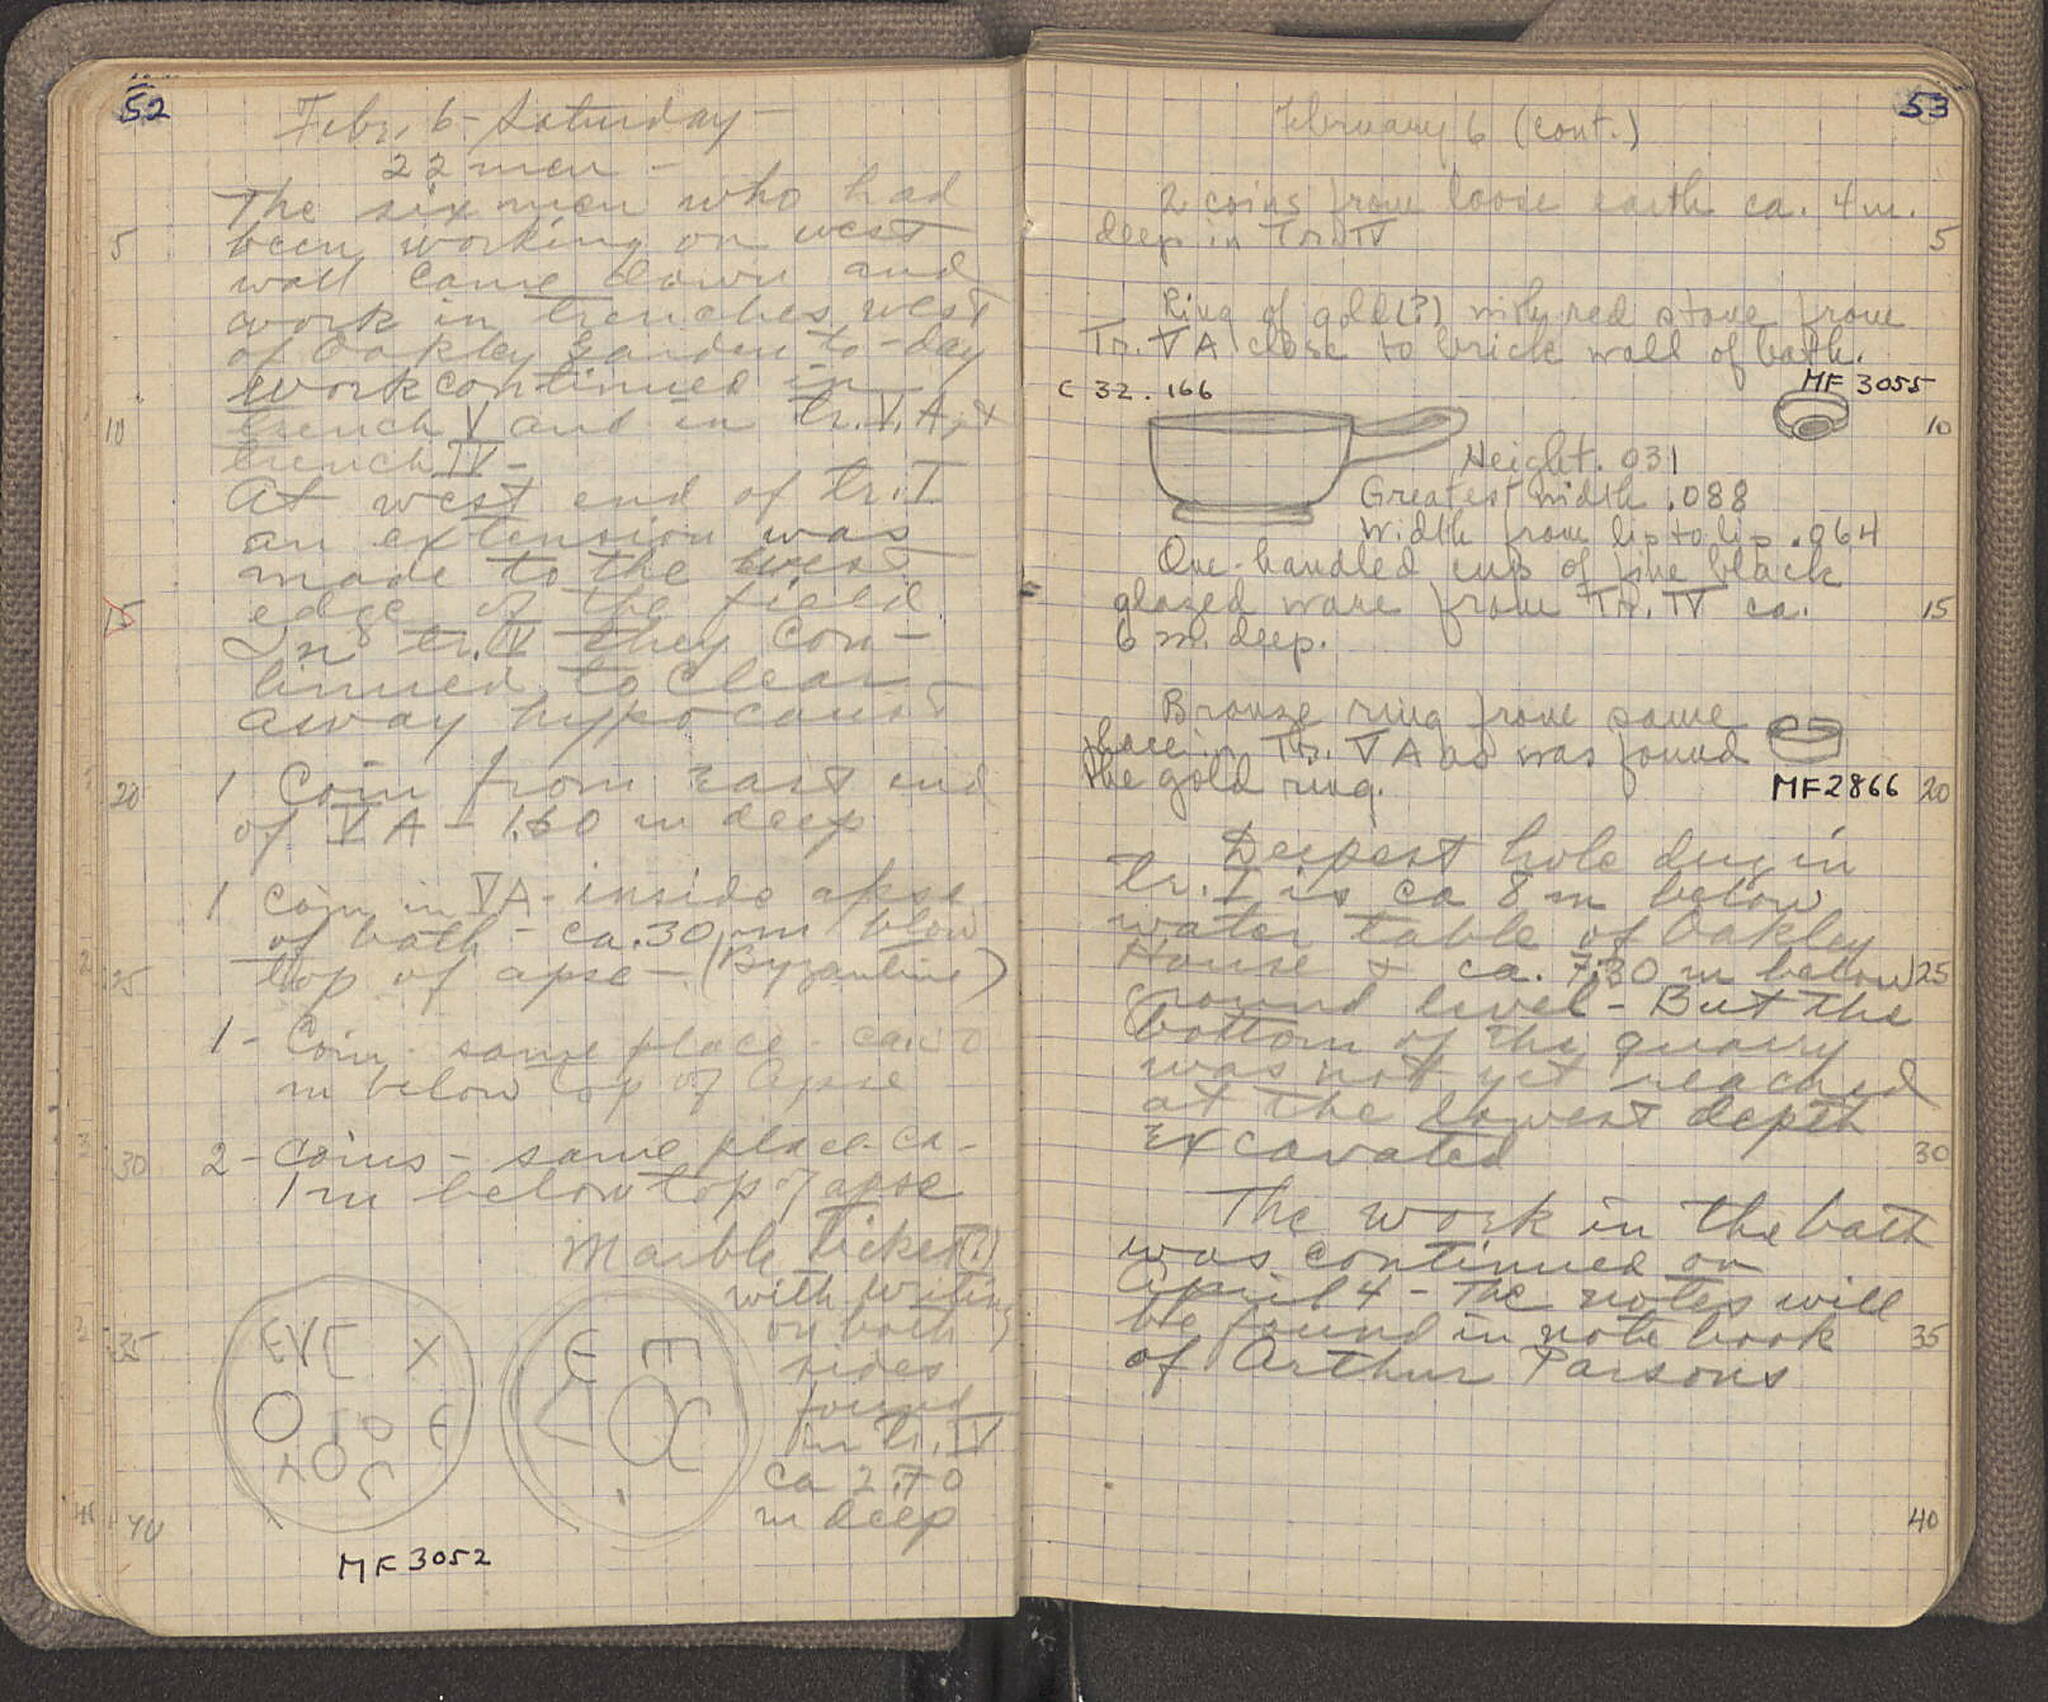 52
Febr. 6 - Saturday -
22 men -
The six men who had
5
been working on west
wall came down and
work in trenches west
of Oakley Garden to-day
work continued in
10
trench V and in tr. V A, &
trench IV -
At west end of tr. I
an extension was
made to the west
15
edge of the field.
In tr. IV they con-
tinued to clear
away hypocaust
20
1 Coin from East end
of V A - 1.60 m deep
1 Coin in V A - inside apse
of bath - ca. 30 m blow
25
top of apse - (Byzantine)
1 - Coin - same place - ca.
m below top of Apse
30
2 - Coins - same place ca -
1 m below top of apse
Marble Ticket (?)
with writing
on both
35
sides
found
in tr. IV
ca 2.70
m deep
EVE X
E E
40
MF 3052
53
February 6 (cont.)
2 coins from loose earth ca. 4 m.
deep in Tr. IV
5
Ring of gold (?) with red stone from
Tr. V A close to brick wall of bath.
C 32. 166
MF 3055
10
Height .031
Greatest width .088
Width from lip to lip .064
One-handled cup of fine black
glazed ware from Tr. IV ca.
15
6 m. deep.
Bronze ring from same
place in Tr. V A as was found
the gold ring.
MF 2866
20
Deepest hole dug in
tr. I is ca 8 m below
water table of Oakley
House & ca. 7.30 m below
25
ground level - But the
bottom of the quarry
was not yet reached
at the lowest depth
Excavated
30
The work in the bath
was continued on
April 4 - The notes will
be found in note book
35
of Arthur Parsons
40